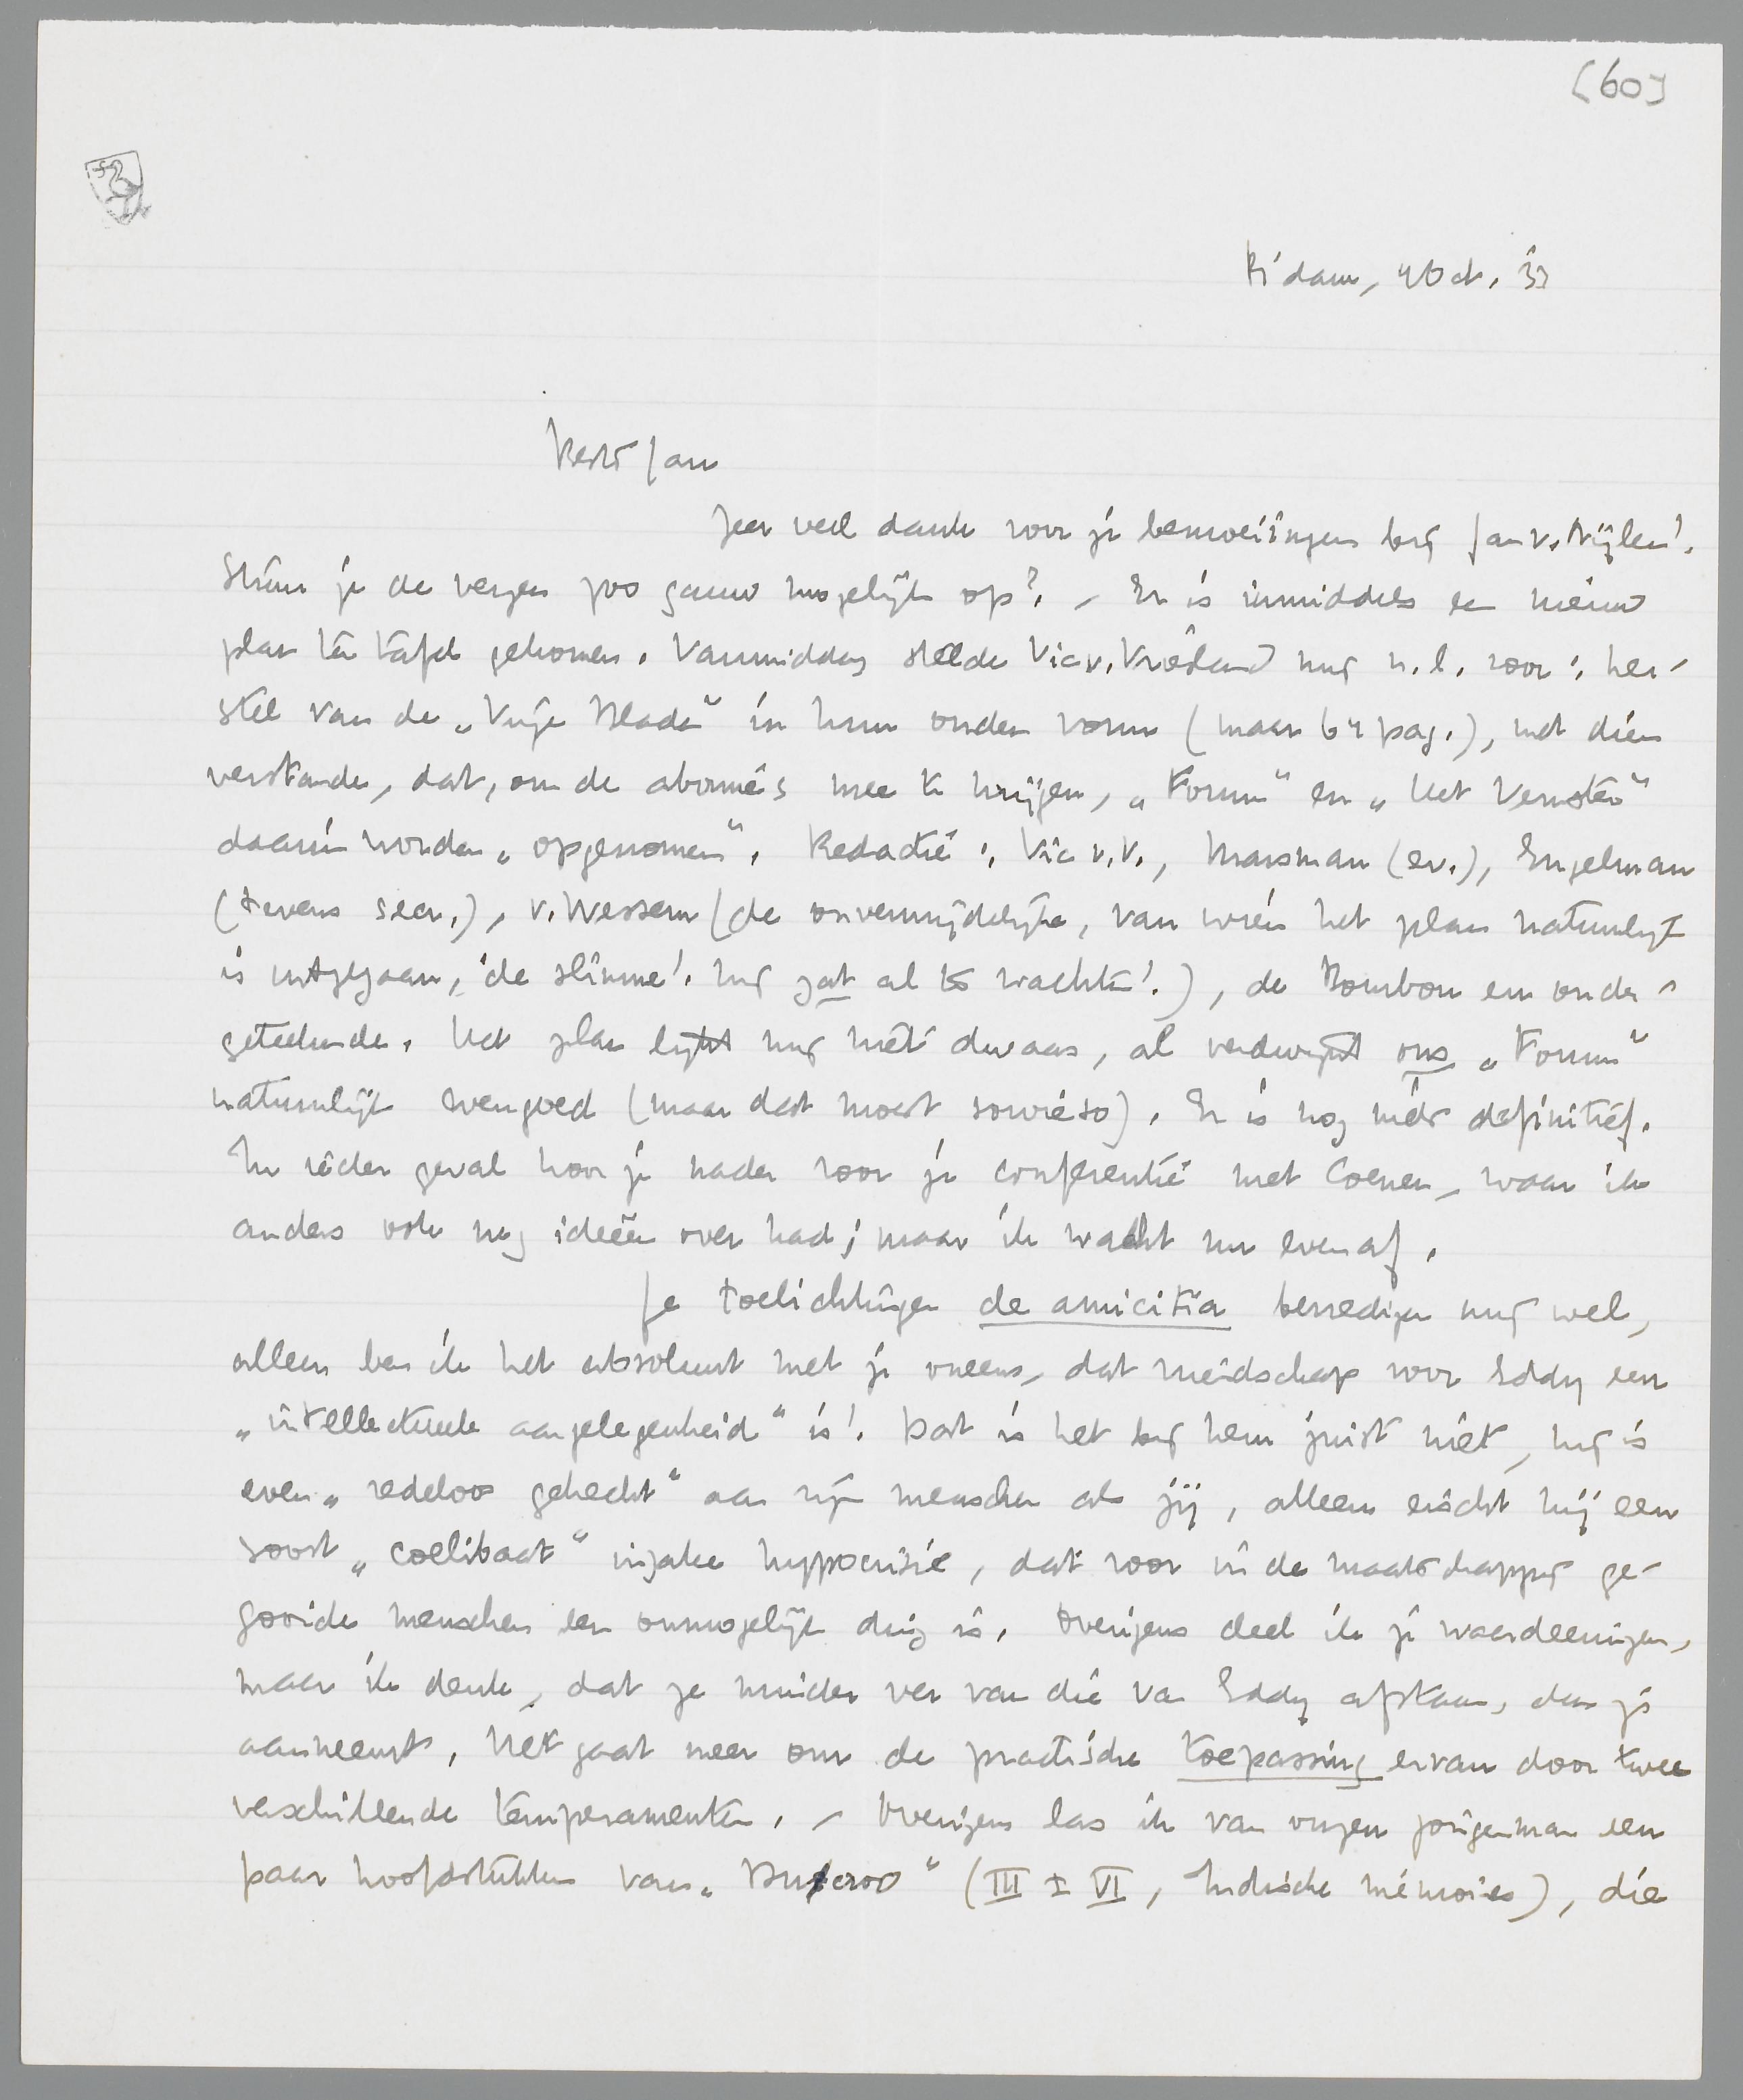 [60]
R'dam, 4 Oct. '33
Beste Jan
Zeer veel dank voor je bemoeiingen bij Jan v. Nijlen!
Stuur je de verzen zoo gauw mogelijk op? – Er is inmiddels een nieuw
plan ter tafel gekomen. Vanmiddag stelde Vic v. Vriesland mij n.l. voor: her-
stel van de „Vrije Bladen" in hun ouden vorm (maar 64 pag.), met dien
verstande, dat, om de abonné's mee te krijgen, „Forum" en „Het Venster"
daarin worden „opgenomen". Redactie: Vic v.V., Marsman (ev.), Engelman
(tevens secr.), v. Wessem (de onvermijdelijke, van wien het plan natuurlijk
is uitgegaan, de slimme! hij zat al te wachten!), de Bourbon en onder-
geteekende. Het plan lijkt mij niet dwaas, al verdwijnt ons „Forum"
natuurlijk evengoed (maar dat moest sowieso). Er is nog niets definitief.
In ieder geval hoor je nader voor je conferentie met Coenen, waar ik
anders ook nog ideeën over had; maar ik wacht nu even af.
Je toelichtingen de amicitia bevredigen mij wel,
alleen ben ik het absoluut met je oneens, dat vriendschap voor Eddy een
„intellectueele aangelegenheid" is! Dat is het bij hem juist niét, hij is
even „redeloos gehecht" aan zijn menschen als jij, alleen eischt hij een
soort „coelibaat" inzake hypocrisie, dat voor in de maatschappij ge-
gooide menschen een onmogelijk ding is. Overigens deel ik je waardeeringen,
maar ik denk, dat ze minder ver van die van Eddy afstaan, dan je
aanneemt. Het gaat meer om de practische toepassing ervan door twee
verschillende temperamenten. – Overigens las ik van onzen jongenman een
paar hoofdstukken van „Ducroo" (III + VI, Indische mémoires), die